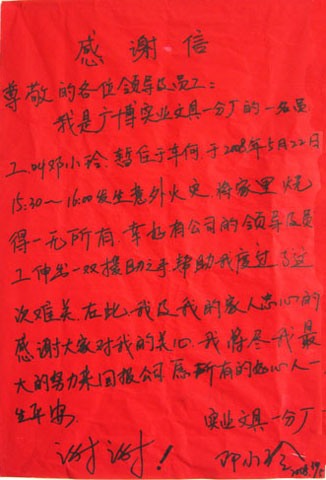 感谢信
尊敬的各位领导及员工:
我是广博实业文具一分厂的一名员
工叫邓小玲,暂住于车何,于2008年5月22日
15:30～16:00发生意外火灾,将家里烧
得一无所有,幸好有公司的领导及员
工伸出一双援助之手,帮助我度过了这
次难关,在此,我及我的家人忠心的
感谢大家对我的关心,我将尽我最
大的努力来回报公司,愿所有的好心人一
生平安
实业文具一分厂
谢谢! 邓小玲